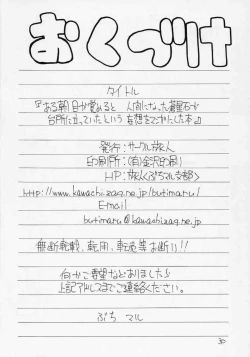 おくづけ
タイトル
『ある朝目が覚めると 人間になった蒼星石が
台所に立っていたという 妄想をマンガにした本』
発行:サークル旅人
印刷所:(自)金沢印刷
HP:旅人ぶちまる部
http://www.kawachi.zaq.ne.jp/butimaru/
E-mail
butimaru@kawachi.zaq.ne.jp
無断転載、転用、転売等お断り!!
何かご要望などありましたら
上記アドレスまでご連絡ください。
ぶち マル
30